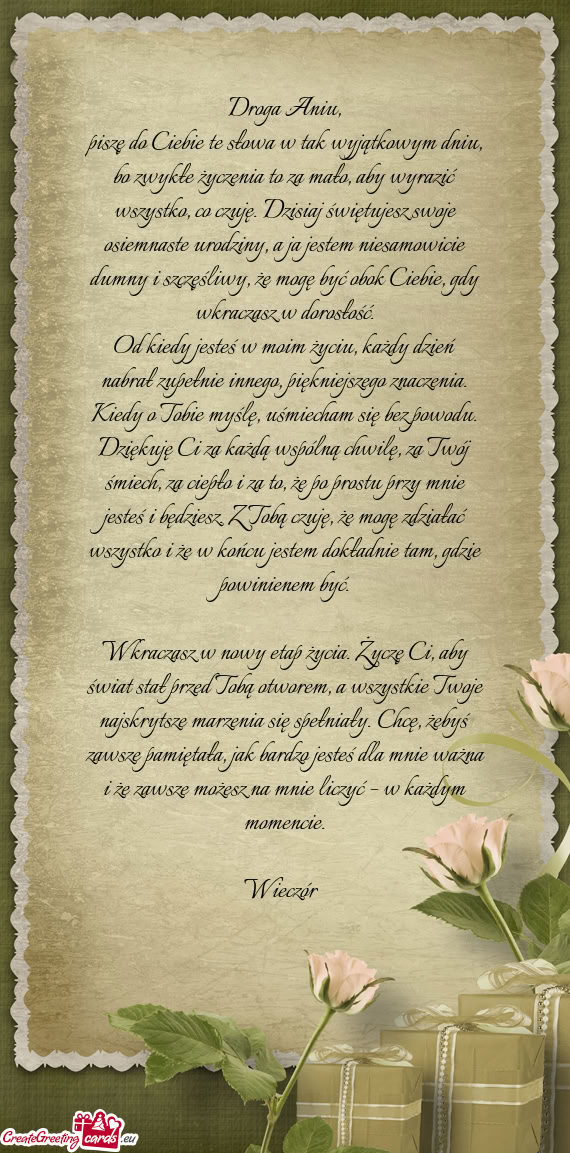 Droga Aniu,
piszę do Ciebie te słowa w tak wyjątkowym dniu,
bo zwykłe życzenia to za mało, aby wyrazić
wszystko, co czuję. Dzisiaj świętujesz swoje
osiemnaste urodziny, a ja jestem niesamowicie
dumny i szczęśliwy, że mogę być obok Ciebie, gdy
wkraczasz w dorosłość.
Od kiedy jesteś w moim życiu, każdy dzień
nabrał zupełnie innego, piękniejszego znaczenia.
Kiedy o Tobie myślę, uśmiecham się bez powodu.
Dziękuję Ci za każdą wspólną chwilę, za Twój
śmiech, za ciepło i za to, że po prostu przy mnie
jesteś i będziesz. Z Tobą czuję, że mogę zdziałać
wszystko i że w końcu jestem dokładnie tam, gdzie
powinienem być.
Wkraczasz w nowy etap życia. Życzę Ci, aby
świat stał przed Tobą otworem, a wszystkie Twoje
najskrytsze marzenia się spełniały. Chcę, żebyś
zawsze pamiętała, jak bardzo jesteś dla mnie ważna
i że zawsze możesz na mnie liczyć – w każdym
momencie.
Wieczór
CreateGreeting cards .eu